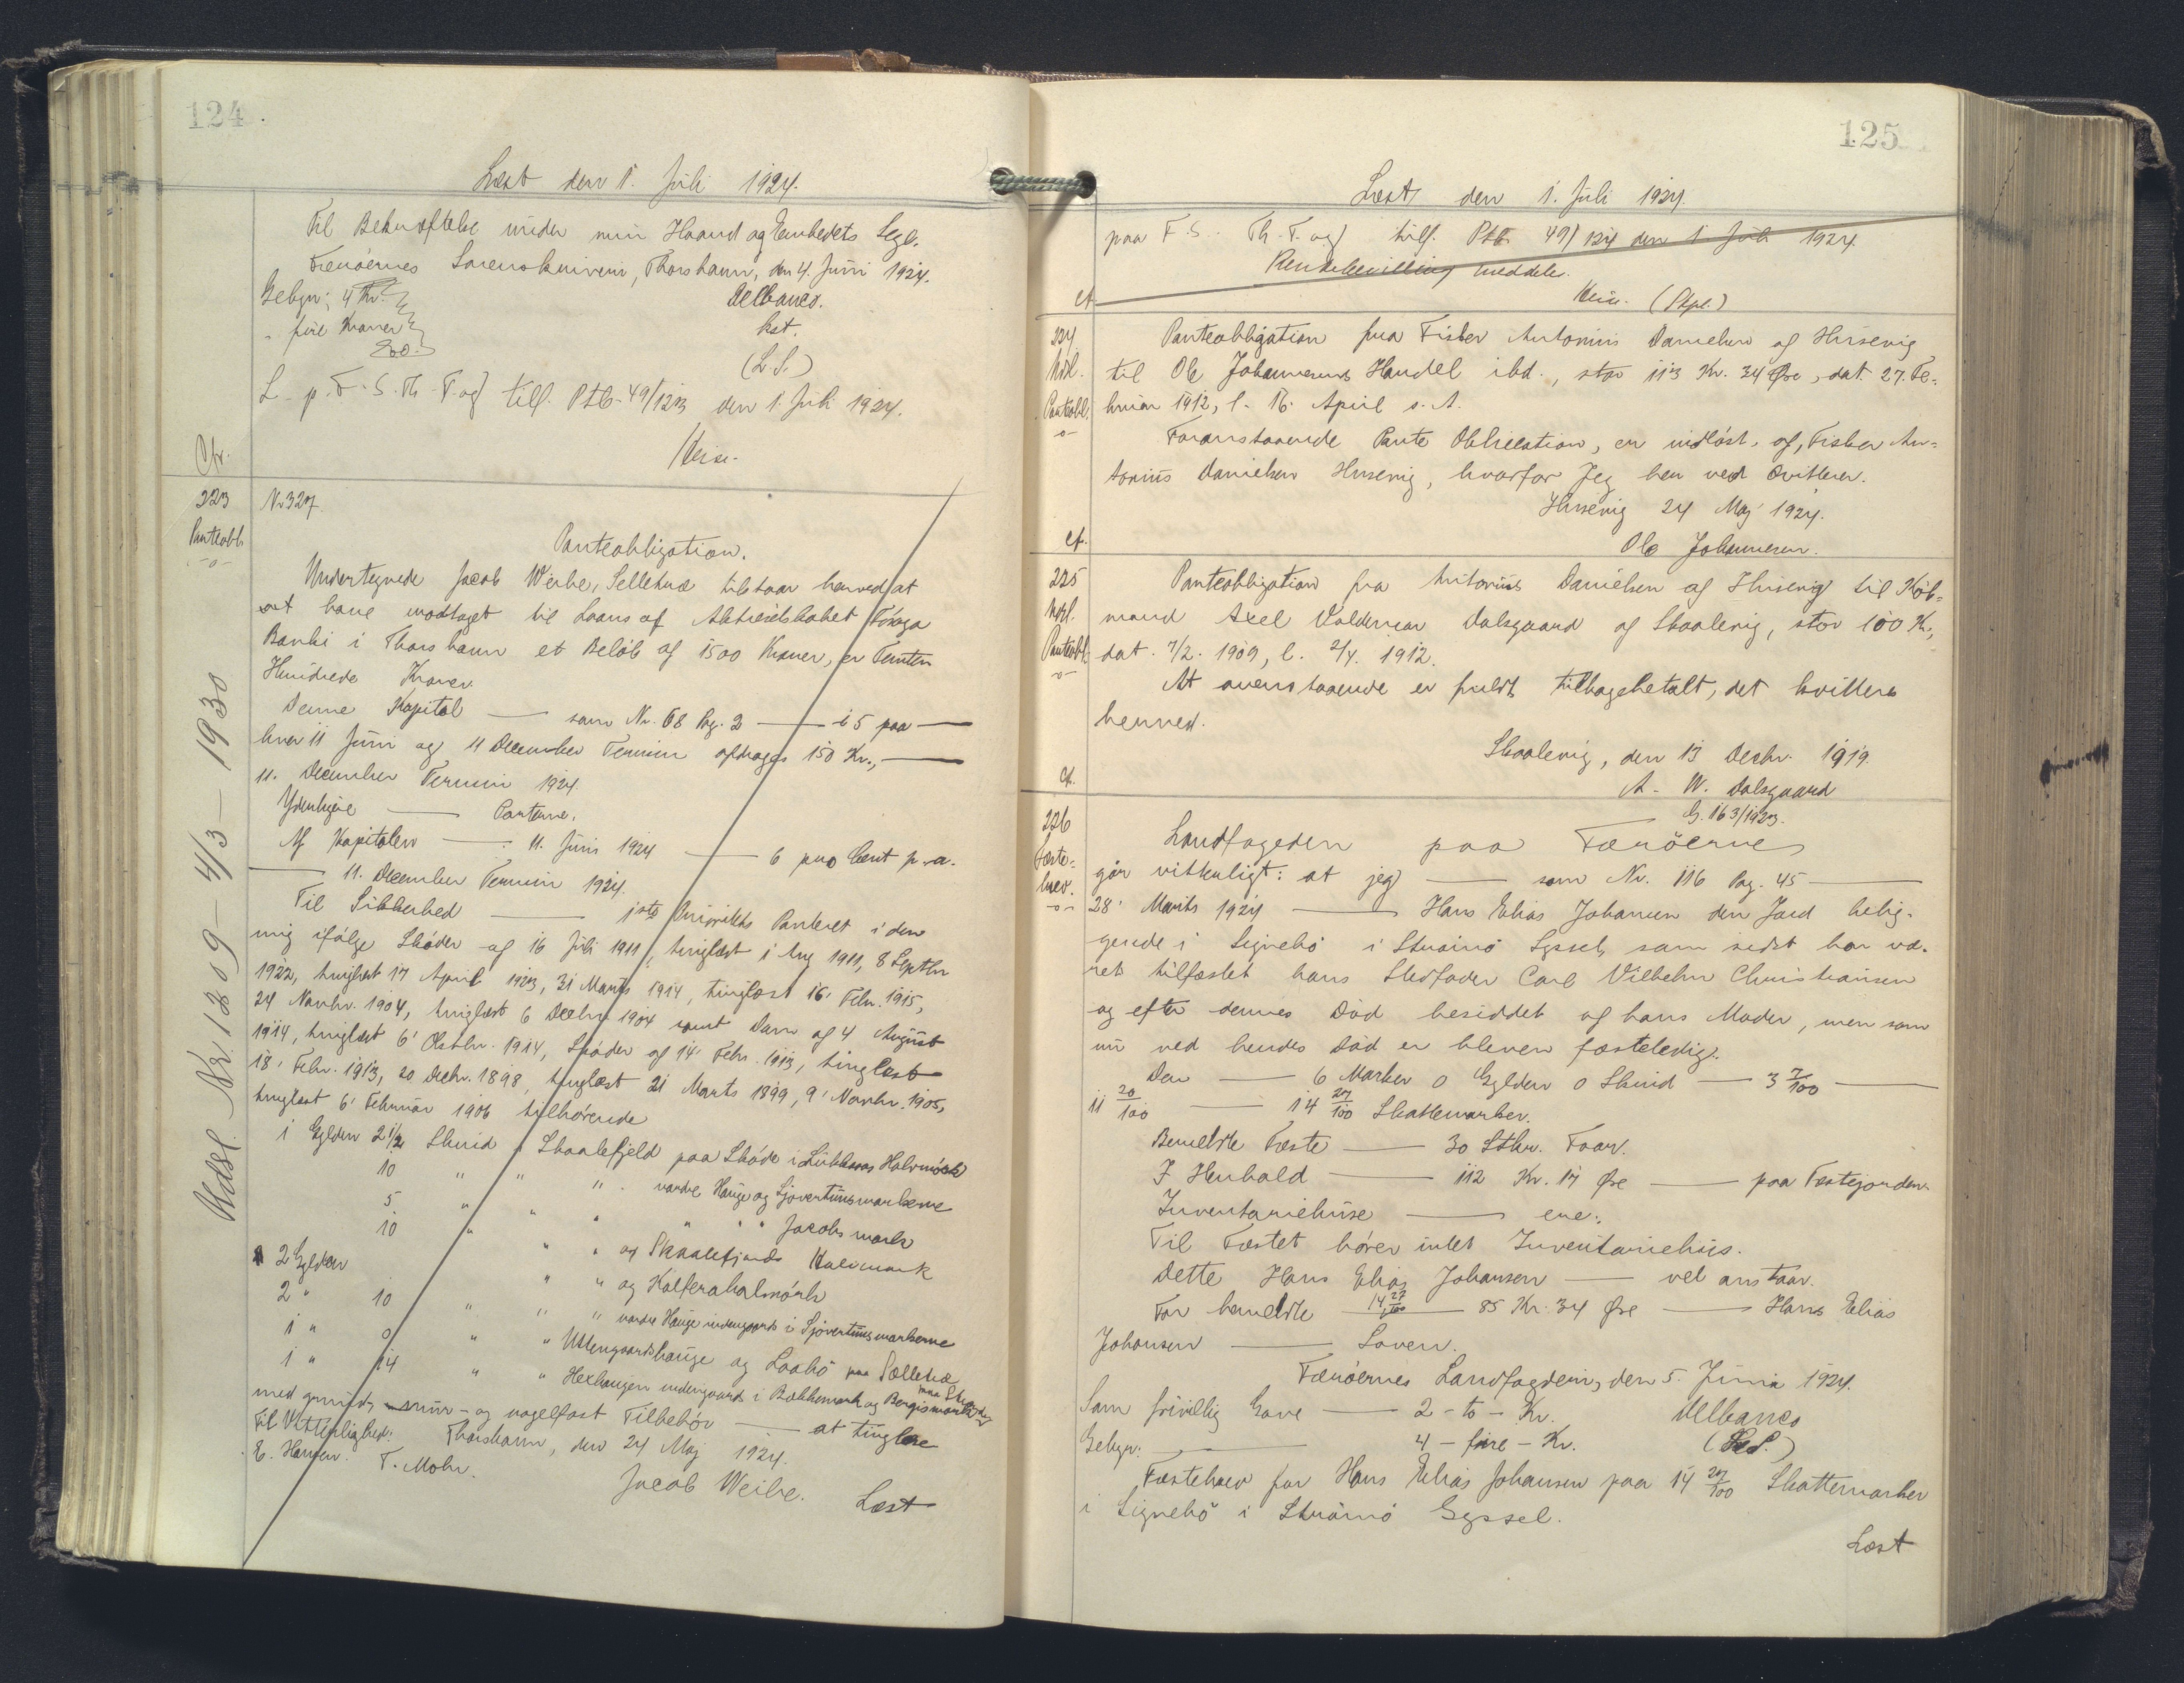 124
Læst den 1. Juli 1924.
Til Bekræftelse under min Haand og Embedets Segl.
Færøernes Sorenskriveri, Thorshavn, den 4. Juni 1924.
Gebyr: 4 Kr. Delbanco.
" fire Kroner kst.
(L.S.)
L. p. F. S. Th. T. og tilf. Ptb. 49/123 den 1. Juli 1924.
Weise.
Cfr.
223 Nr 327
Panteobl.
-o-
Panteobligation.
Undertegnede Jacob Weihe, Selletræ tilstaar herved at
at have modtaget til Laans af Aktieselskabet Föroya
Banki i Thorshavn et Beløb af 1500 Kroner, er Femten
Hundrede Kroner.
Denne Kapital — som Nr. 68 Pag. 2 — i 5 paa —
hver 11 Juni og 11 December Termin afdrages 150 Kr., —
11. December Termin 1924.
Yderligere — Panterne.
Af Kapitalen — 11. Juni 1924 — 6 pro Cent p. a.
— 11. December Termin 1924.
Til Sikkerhed — 1ste Prioritets Panteret i den
mig ifølge Skøder af 16 Juli 1911, tinglæst 1 Aug 1911, 8 Septbr
1922, tinglæst 17 April 1923, 31 Marts 1914, tinglæst 16' Febr. 1915,
24 Novbr. 1904, tinglæst 6 Decbr 1904 samt Dom af 4 August
1914, tinglæst 6' Oktbr. 1914, Skøder af 14' Febr. 1913, tinglæst
18' Febr. 1913, 20 Decbr. 1898, tinglæst 21 Marts 1899, 9' Novbr. 1905,
tinglæst 6' Februar 1906 tilhørende
1 Gylden 2 1/2 Skind i Skaalefjeld paa Skåde i Lükkas Halvmörk
10 " " " nordre Hauge og Sjovertunsmarkerne
5 " " " " " " Jacobs mark
10 " " " og Skaalefjords Halvmark
2 Gylden " " og Kalferahalmörk
2 " 10 " " " nordre Hauge indengaards i Sjovertunsmarkerne
1 " 0 " " Uttengaardshauge og Laabö paa Sælletræ
1 " 14 " " Hexhaugen indengaards i Bakkemark og Bergismark
med grund, mur- og nagelfast Tilbehør — at tinglæse
Til Vitterlighed: Thorshavn, den 24 Maj 1924.
E. Hansen. T. Mohr.
Jacob Weihe. Læst
Udsl. Nr 1209 - 4/3 - 1930
125
Læst den 1. Juli 1924.
paa F. S. Th. T. og tilf. Ptb. 49/124 den 1 Juli 1924.
Rentebevilling meddelt.
Weise. (Stpl.)
cf.
224 Panteobligation fra Fisker Antonius Danielsen af Husevig
Kvl. til Ole Johannesens Handel ibd., stor 113 Kr. 34 Øre, dat. 27. Fe-
Panteobl. bruar 1912, l. 16' April s. A.
-o-
Foranstaaende Pante Oblication, er indløst, af, Fisker An-
tonius Danielsen Husevig, hvorfor Jeg her ved Qvitterer.
Husevig 24 Maj 1924.
cf. Ole Johannesen.
225 Panteobligation fra Antonius Danielsen af Husevig til Køb-
Kvl. mand Axel Valdemar Dalsgaard af Skaalevig, stor 100 Kr.,
Panteobl. dat. 7/2. 1909, l. 2/4. 1912.
-o-
At ovenstaaende er fuldt tilbagebetalt, det kvitteres
herved.
Skaalevig, den 13 Decbr. 1919.
cf. A. W. Dalsgaard
G. 163/1923.
226 Landfogeden paa Færøerne
Fæste-
brev. gör vitterligt: at jeg — som Nr. 116 Pag. 45 —
-o- 28' Marts 1924 — Hans Elias Johansen den Jord belig-
gende i Signebö i Strömö Syssel, som sidst har væ-
ret tilfæstet hans Stedfader Carl Vilhelm Christiansen
og efter dennes Død besiddet af hans Moder, men som
nu ved hendes Død er bleven fæsteledig.
Den — 6 Marker 0 Gylden 0 Skind — 3 7/100 —
11 20/100 — 14 27/100 Skattemarker.
Bemeldte Fæste — 30 Stkr. Faar.
I Henhold — 112 Kr. 17 Øre — paa Fæstejorden
Inventariehuse — ere:
Til Fæstet hører intet Inventariehus.
Dette Hans Elias Johansen — vel anstaar.
For bemeldte 14 27/100 — 85 Kr. 34 Øre — Hans Elias
Johansen — Loven.
Færøernes Landfogderi, den 5. Juni 1924.
Som frivillig Gave — 2 - to - Kr. Delbanco
Gebyr: — 4 - fire - Kr. (L.S.)
Fæstebrev for Hans Elias Johansen paa 14 27/100 Skattemarker
i Signebö i Strömö Syssel.
Læst